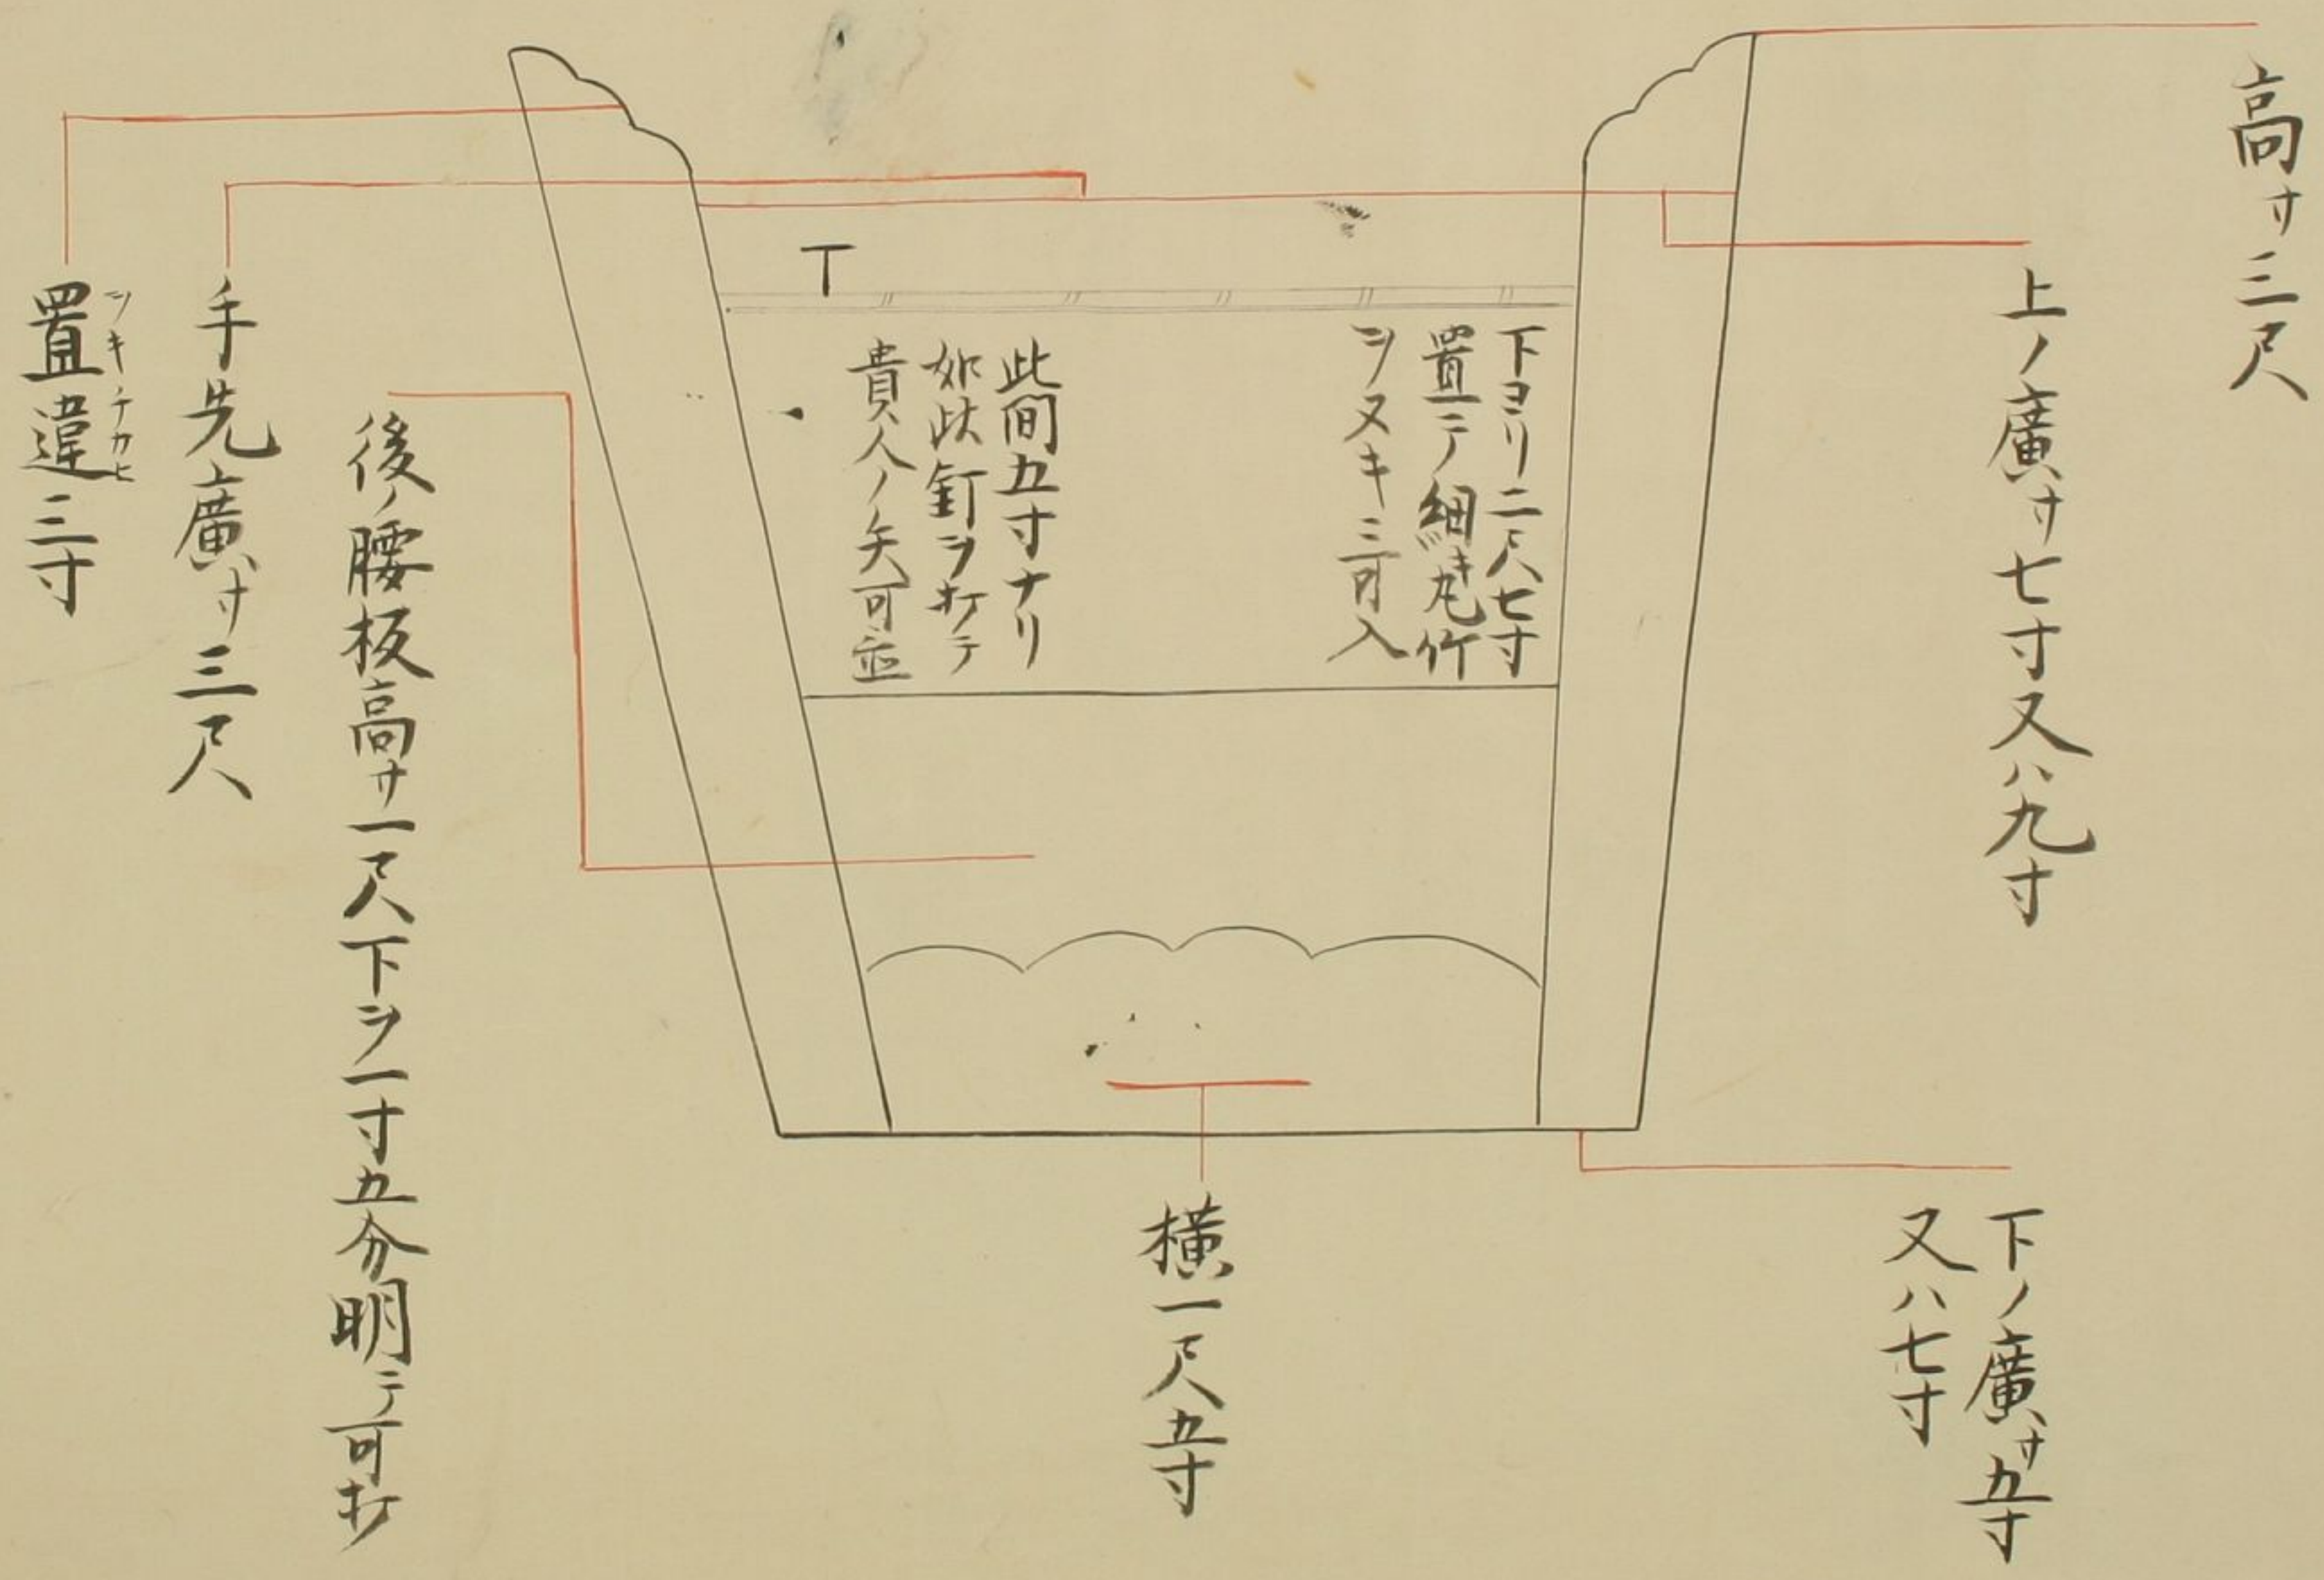 高サ三尺
上ノ廣サ七寸又ハ九寸
下ノ廣サ五寸
又ハ七寸
下ヨリ二尺七寸
置テ細キ丸竹
ヲヌキニ可入
此間五寸ナリ
如此釘ヲ打テ
貴人ノ矢可並
横一尺五寸
後ノ腰板高サ一尺下ヲ一寸五分明テ可打
手先廣サ三尺
置違三寸
ヲキチカヒ